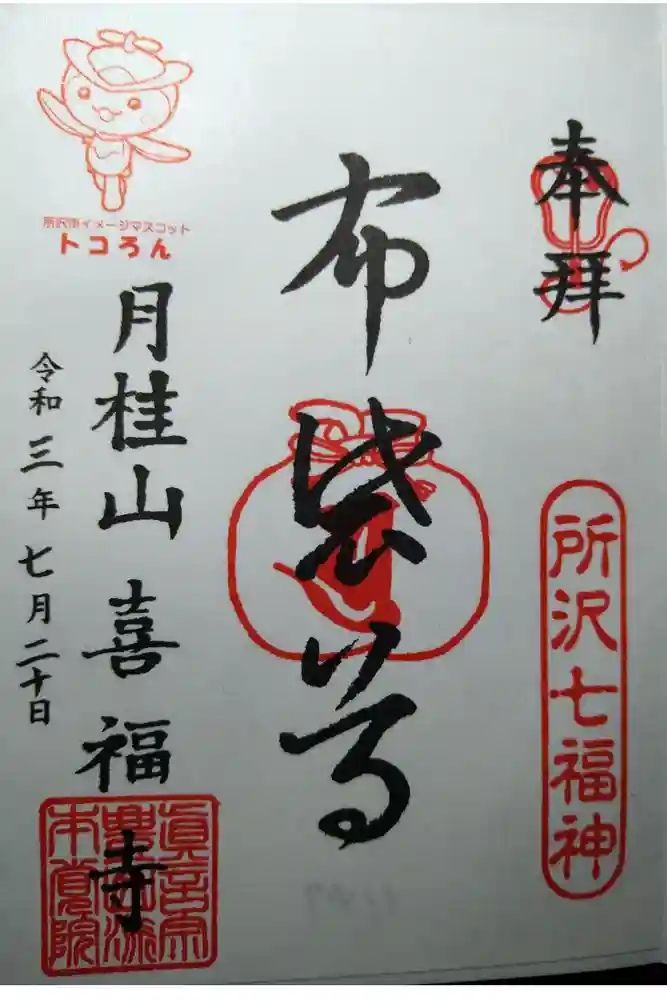 奉拝
所沢七福神
布袋尊
所沢市イメージマスコット
トコろん
月桂山 喜福寺
令和三年七月二十日